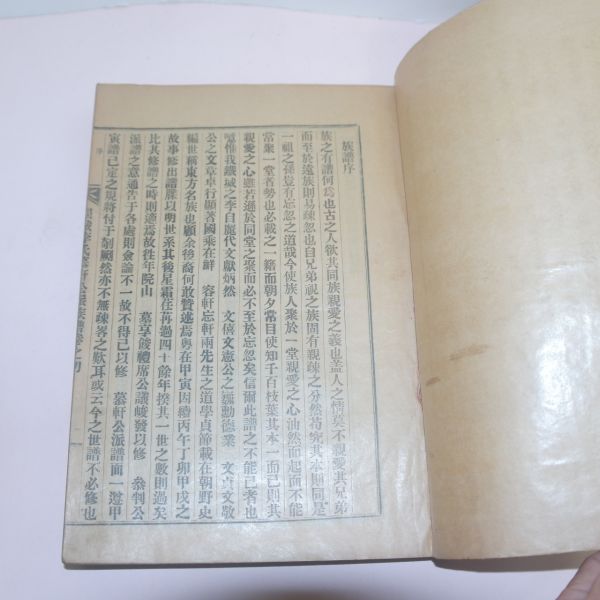 族譜序
族之有譜何爲也古之人欲其同族親愛之義也盖人之情莫不親愛其兄弟
而至於遠族則易疎忽也自兄弟視之族固有親疎之分然苟究其本則同是
一祖之孫豈有忘忽之道哉今使族人聚於一堂親愛之心油然而起而不能
常聚一堂者勢也必載之一籍而朝夕常目使知千百枝葉其本一而已則其
親愛之心雖若遜於同堂之聚而必不至於忘忽矣信爾此譜之不能已者也
噫惟我鐵城之李自麗代文獻炳然 文僖文憲公之勳德業 文貞文敬
公之文章卓行顯著國乘在鮮 容軒忘軒兩先生之道學貞節載在朝野史
編世稱東方名族也顧余後裔何敢贅述焉粤在甲寅因續丙午丁卯甲戌之
故事修出譜牒以明世系其後星霜荏苒過四十餘年揆其一世之數則過矣
比其修譜之時則適焉故往年院山 墓享餕禮席公議峻發以修 參判公
派譜之意通告于各處則僉論不一故不得已以修 慕軒公派譜而一遵甲
寅譜已定之規將付于剞劂然亦不無疎畧之歎耳或云今之世譜不必修也
序